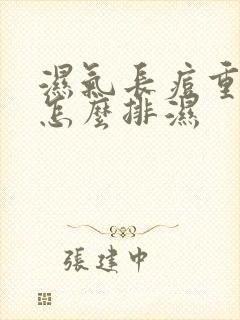 濕氣長痘重
怎麼排濕
張建中